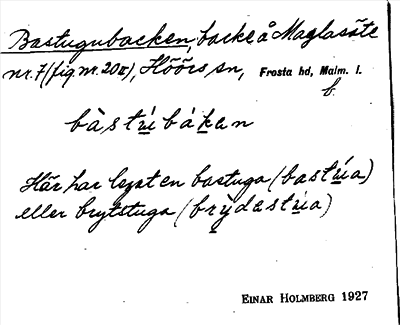 Bastugubacken, backe å Maglasäte
nr. 7 (fig nr. 20II), Höörs sn, Frosta hd, Malm. l.
f.
bàstu̲´ibákan
Här har legat en bastuga (bastu̲´ia)
eller brytstuga (brỳ̲dastu̲´ia)
EINAR HOLMBERG 1927